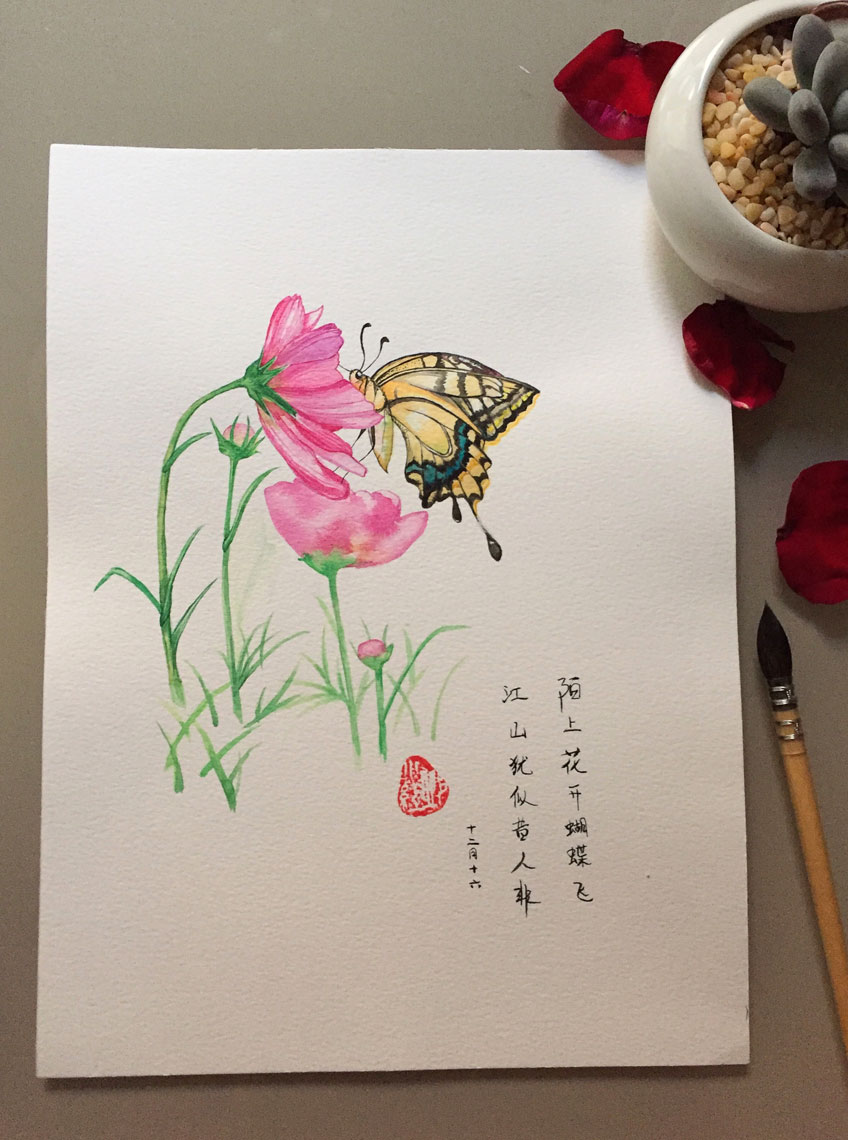 陌上花开蝴蝶飞
江山犹似昔人非
十二月十六